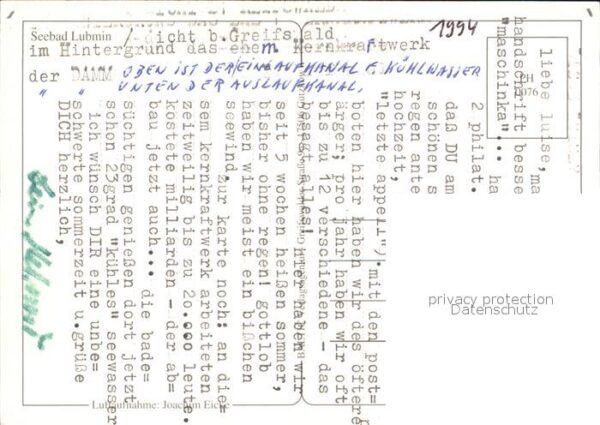 1994
Seebad Lubmin / dicht b.Greifswald
im Hintergrund das ehem Kernkraftwerk
der DAMM OBEN IST DER EINLAUFKANAL F. KÜHLWASSER
" " UNTEN DER AUSLAUFKANAL.
liebe luise, ma
handschrift besse
"maschinka"... ha
2 philat.
daß DU am
schönen s
regen ante
hochzeit,
"letzte appell") mit den post=
boten hier haben wir des öftere
ärger; pro jahr haben wir oft
bis zu 12 verschiedene - das
besagt alles! hier haben wir
seit 5 wochen heißen sommer,
bisher ohne regen! gottlob
haben wir meist ein bißchen
seewind.
zur karte noch: an die=
sem kernkraftwerk arbeiteten
zeitweilig bis zu 20.000 leute.
kostete milliarden - der ab=
bau jetzt auch... die bade=
süchtigen genießen dort jetzt
schon 23grad "kühles" seewasser
ich wünsch DIR eine unbe=
schwerte sommerzeit u.grüße
DICH herzlich,
PH
privacy protection
Datenschutz
Luftaufnahme: Joachim Eicke